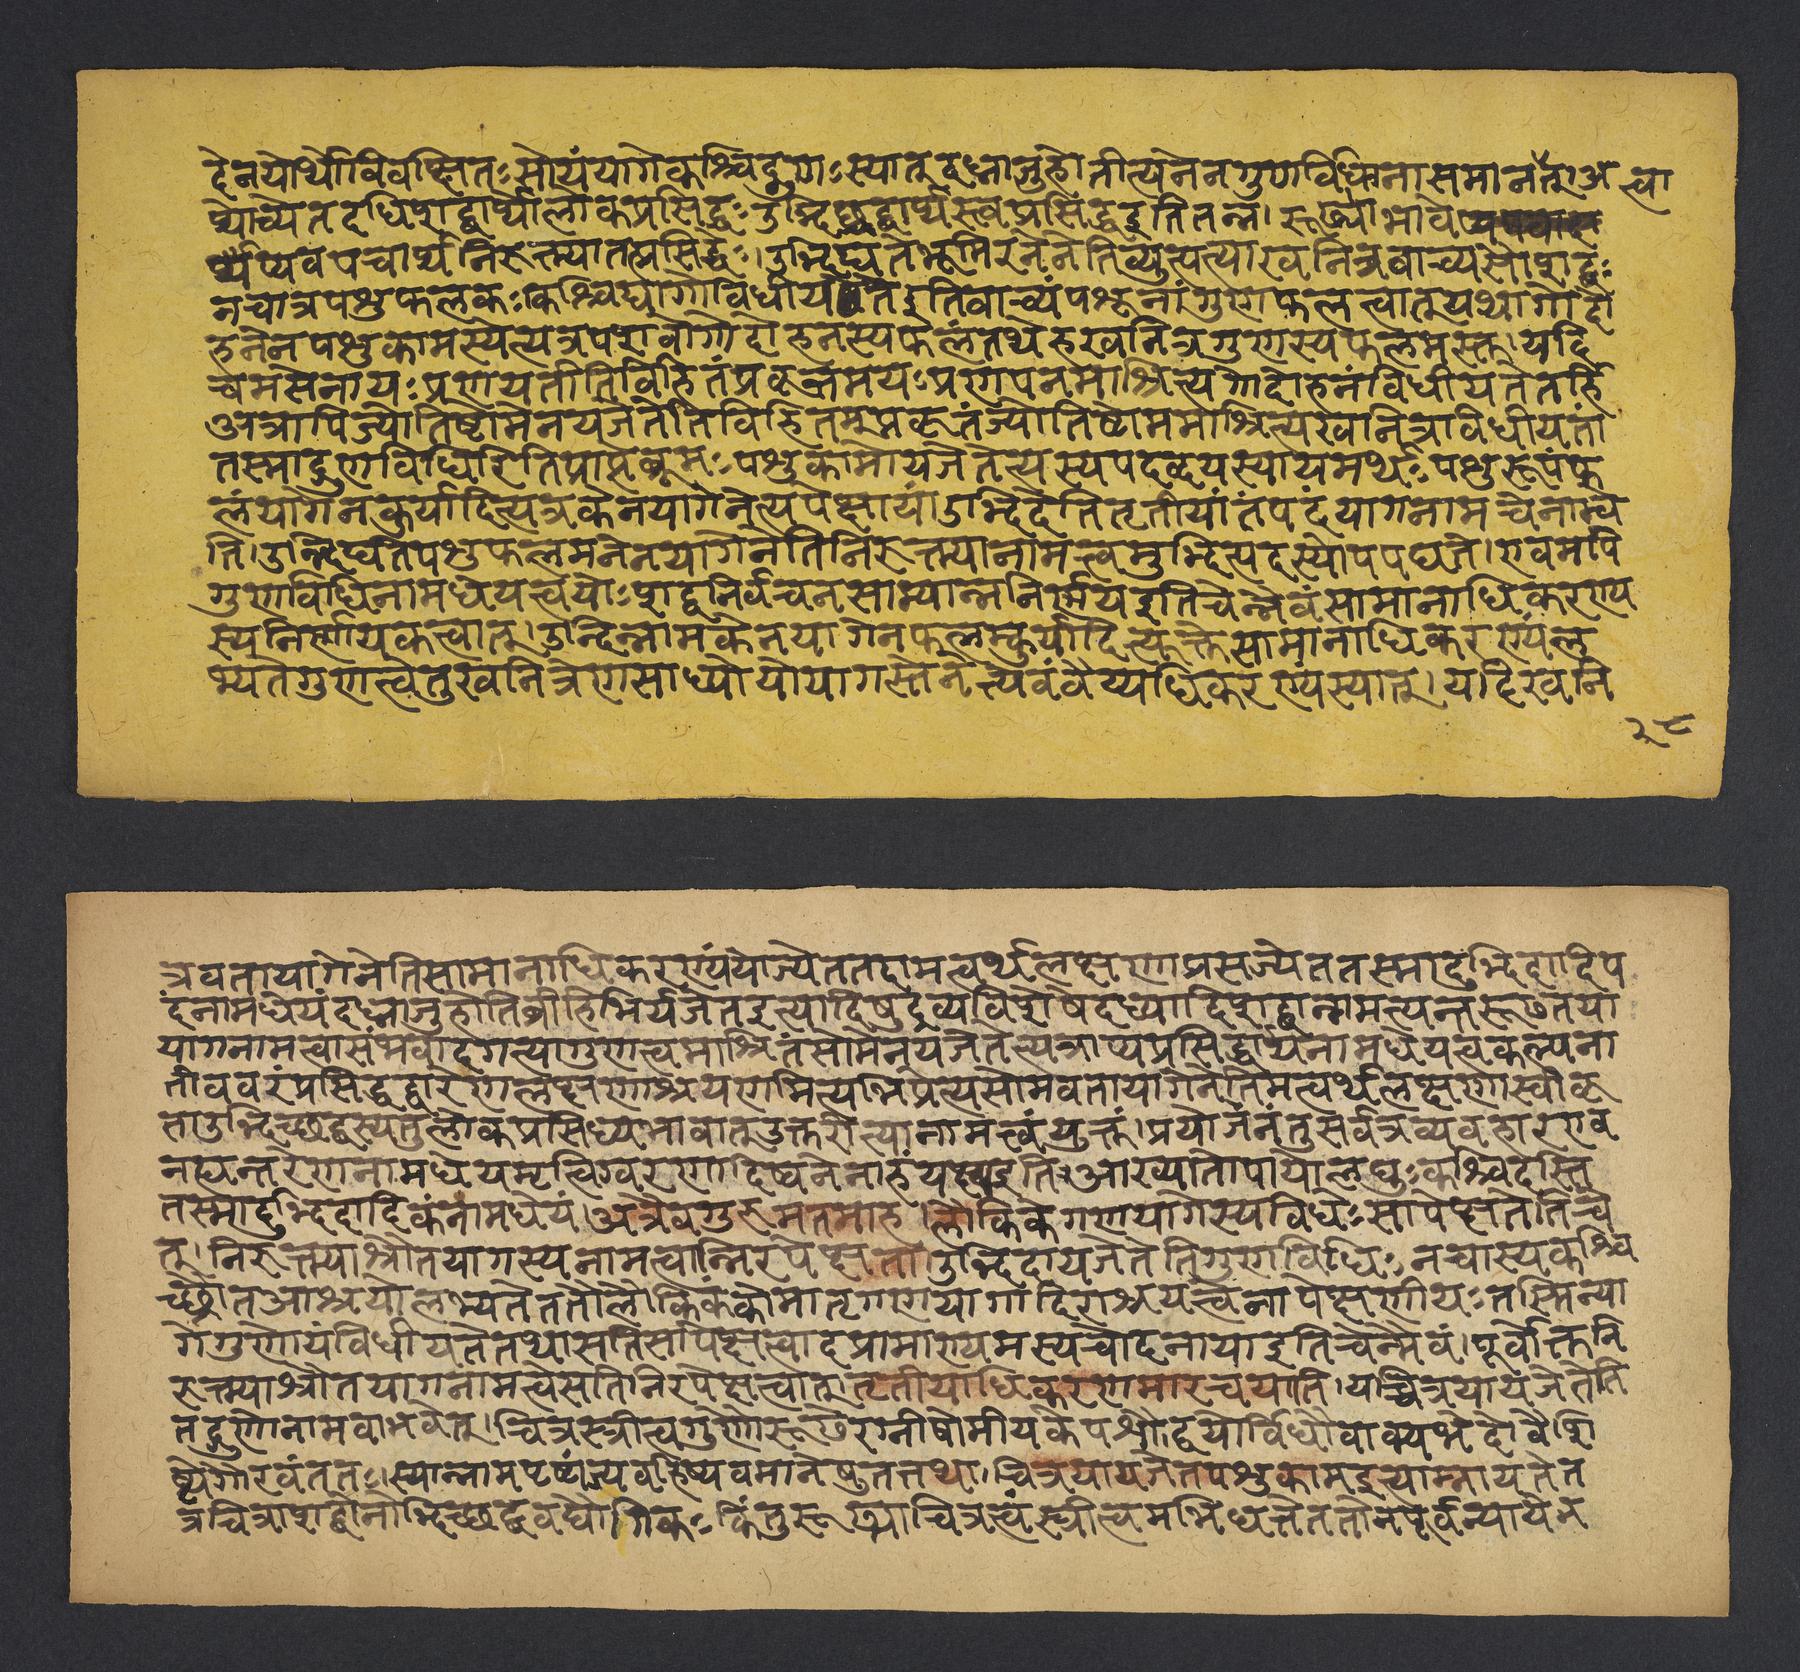 देनयोर्थोविवक्षितः सोयंयागेकश्चिद्गुणः स्यात् दध्नाजुहोतीत्यनेनगुणविधिनासमानत्वात् अ
प्येाच्येतदधिशब्दार्थोलोकप्रसिद्धः उद्भिच्छब्दार्थस्त्वप्रसिद्धइतितन्न। रूढ्याभावे
प्यवपवार्थनिरुक्त्यातत्प्रसिद्धेः। उद्भिद्यतेभूमिरनेनेतिव्युत्पत्त्याखनित्रवाच्यसौशब्दः
नचात्रपशुफलकः कश्चिद्यागोविधीयतेइतिवाच्यंपशूनांगुणफलत्वात् यथागोदो
हनेनपशुकामस्येत्यत्रपशवोगोदोहनस्यफलंतथेहखनित्रगुणस्यफलमस्तु। यदि
चमसेनायः प्रणयतीतिविहितंप्रकृतमयः प्रणयनमाश्रित्यगोदोहनंविधीयतेतर्हि
अत्रापिज्योतिष्टोमेनयजेतेतिविहितम्प्रकृतंज्योतिष्टोममाश्रित्यखनित्राविधीयतां
तस्माद्गुणविधिरितिप्राप्तेब्रूमः पशुकामोयजेतेत्यस्यपदद्वयस्यायमर्थः पशुरूपंफ
लंयागेनकुर्यादित्यत्रकेनयागेनेत्यपेक्षायां उद्भिदेतितृतीयांतंपदंयागनामचेनान्वे
ति। उद्भिद्यतेपशुफलमनेनयागेनेतिनिरुक्त्यानामत्वमुद्भित्पदस्योपपद्यते। एवमपि
गुणविधिनामधेयत्वयोः शब्दनिर्वचनसाम्यान्ननिर्णयइतिचेन्मैवंसामानाधिकरण्य
स्यनिर्णायकत्वात्। उद्भिन्नामकेनयागेनफलम्कुर्यादित्युक्तेसामानाधिकरण्यंल
भ्यतेगुणत्वेतुखनित्रेणसाध्योयोयागस्तेनेत्येवंवैय्यधिकरण्यंस्यात्। यदिखनि
२८
त्रवतायागेनेतिसामानाधिकरण्यंयोज्येततदामत्वर्थलक्षणाप्रसज्येततस्मादुद्भिदादिप
दंनामधेयंदध्नाजुहोतिव्रीहिभिर्यजेतइत्यादिषुद्रव्यविशेषेदध्यादिशब्दानामत्यन्तरूढतया
यागनामत्वासंभवादगत्यागुणत्वमाश्रितंसोमेनयजेतेत्यत्राप्यप्रसिद्धार्थनामधेयत्वकल्पना
तोववरंप्रसिद्धद्वारेणलक्षणाश्रयणमित्यभिप्रेत्यसोमवतायागेनेतिमत्वर्थलक्षणास्वीकृ
ताउद्भिच्छब्दस्यतुलोकप्रसिध्यभावात् उक्तरीत्यानामत्वंयुक्तं। प्रयोजनंतुसर्वत्रव्यवहारएव
नह्यन्तरेणनामधेयमृत्विग्वरणादिष्वनेनाहंयक्ष्यइतिआख्यातोपायोलघुः कश्चिदस्ति
तस्मादुद्भिदादिकंनामधेयं। अत्रैवगुरुमतमाह। लौकिकेगणयागेस्यविधेः सापेक्षतेतिचे
त्। निरुक्त्याश्रौतयागस्यनामत्वान्निरपेक्षता। उद्भिदायजेतेतिगुणविधिः। नचास्यकश्चि
च्छ्रौतआश्रयोलभ्यतेततोलौकिकंकोमातृगणयागादिराश्रयत्वेनापेक्षणीयः तस्मिन्या
गेगुणोयंविधीयतेतथासतिसापेक्षत्वादप्रामाण्यमस्यचोदनायाइतिचेन्मैवं। पूर्वोक्तनि
रुक्त्याश्रौतयागनामत्वेसतिनिरपेक्षत्वात्। तृतीयाधिकरणमारचयति। यच्चित्रयायजेतेति
तद्गुणोनामवाभवेत्। चित्रस्त्रीत्वगुणोरूढेरग्नीषोमीयकेपशौ। द्वयोर्विधौवाक्यभेदोवैशि
ष्ट्येगौरवंततः। स्यान्नामपृष्टाज्यबहिष्पवमानेषुतत्तथा। चित्रयायजेतपशुकामइत्याम्नायतेत
त्रचित्राशब्दोनोद्भिच्छब्दवद्यौगिकः किंतुरूढ्याचित्रत्वंस्त्रीत्वमभिधत्तेततोनपूर्वन्यायेन